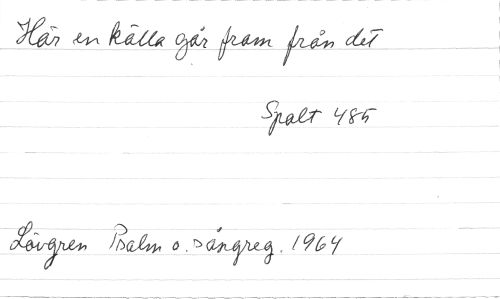 Här en källa går fram från det
Spalt 485
Lövgren Psalm o. sångreg. 1964